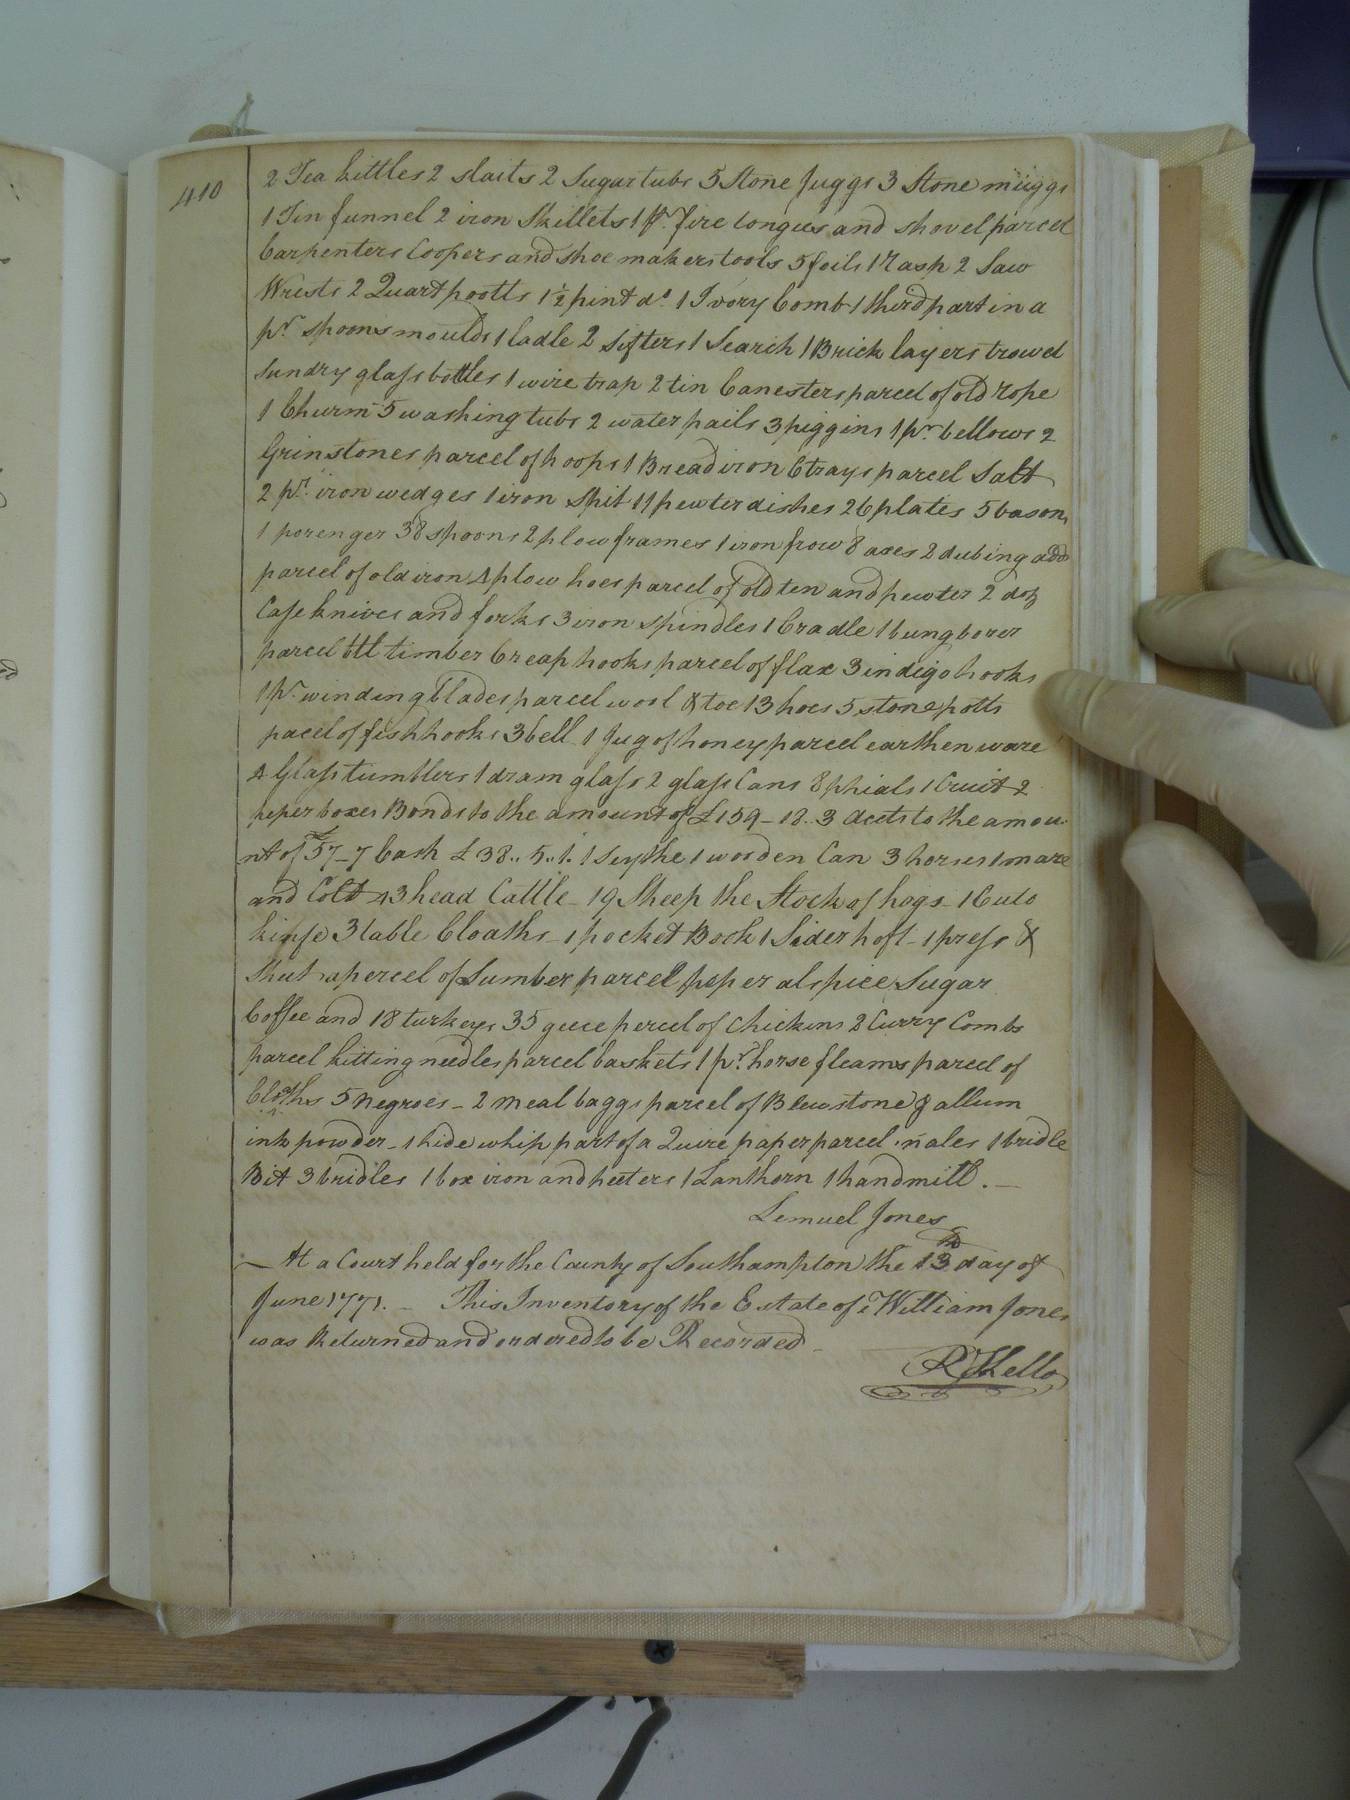 410
2 Tea kittles 2 slaits 2 Sugar tubs 5 Stone Juggs 3 Stone muggs
1 Tin funnel 2 iron Skillets 1 pr. fire tongues and shovel parcel
Carpenters Coopers and shoe makers tools 5 foils 17 asp 2 Saw
Wrests 2 Quart pootts 1 ½ pint do. 1 Ivory Comb 1 third part in a
pr. spoons moulds 1 ladle 2 sifters 1 Search 1 Brick layers trowel
Sundry glass bottles 1 wire trap 2 tin Canesters parcel of old rope
1 Churm 5 washing tubs 2 water pails 3 piggins 1 pr. bellows 2
Grinstones parcel of hoops 1 Bread iron 6 trays parcel Salt
2 pr. iron wedges 1 iron spit 11 pewter dishes 26 plates 5 basons
1 porenger 38 spoons 2 plow frames 1 iron frow 8 axes 2 dubing
parcel of old iron 4 plow hoes parcel of old ten and pewter 2 doz
Case knives and forks 3 iron spindles 1 Cradle 1 bung borer
parcel timber 6 reap hooks parcel of flax 3 indigo hooks
1 pr. winding blades parcel wool & toe 13 hoes 5 stone potts
pacel of fish hooks 3 bell 1 Jug of honey parcel earthen ware
4 Glass tumblers 1 dram glass 2 glass Cans 8 phials 1 Cruit 2
peper boxes Bonds to the amount of £159-18..3 accts to the amou
nt of 57-7 Cash £38..5..1. 1 Scythe 1 wooden Can 3 horses 1 mare
and Colt 43 head Cattle - 19 Sheep the Stock of hogs - 1
3 table Cloaths - 1 pocket Book 1 Sider - 1 press &
a percel of Lumber parcel peper alspice Sugar
Coffee and 18 turkeys 35 geese percel of Chickins 2 Curry Combs
parcel kitting needles parcel baskets 1 pr. horse fleams parcel of
Cloths 5 negroes - 2 meal baggs parcel of Blewstone & allum
ink powder - 1 hide whip part of a Quire paper parcel nales 1 bridle
Bit 3 bridles 1 box iron and heeters 1 Lanthorn 1 handmill. -
Lemuel Jones
- At a Court held for the County of Southampton the 13th day of
June 1771. - This Inventory of the Estate of William Jones
was Returned and ordered to be Recorded -
R Kello